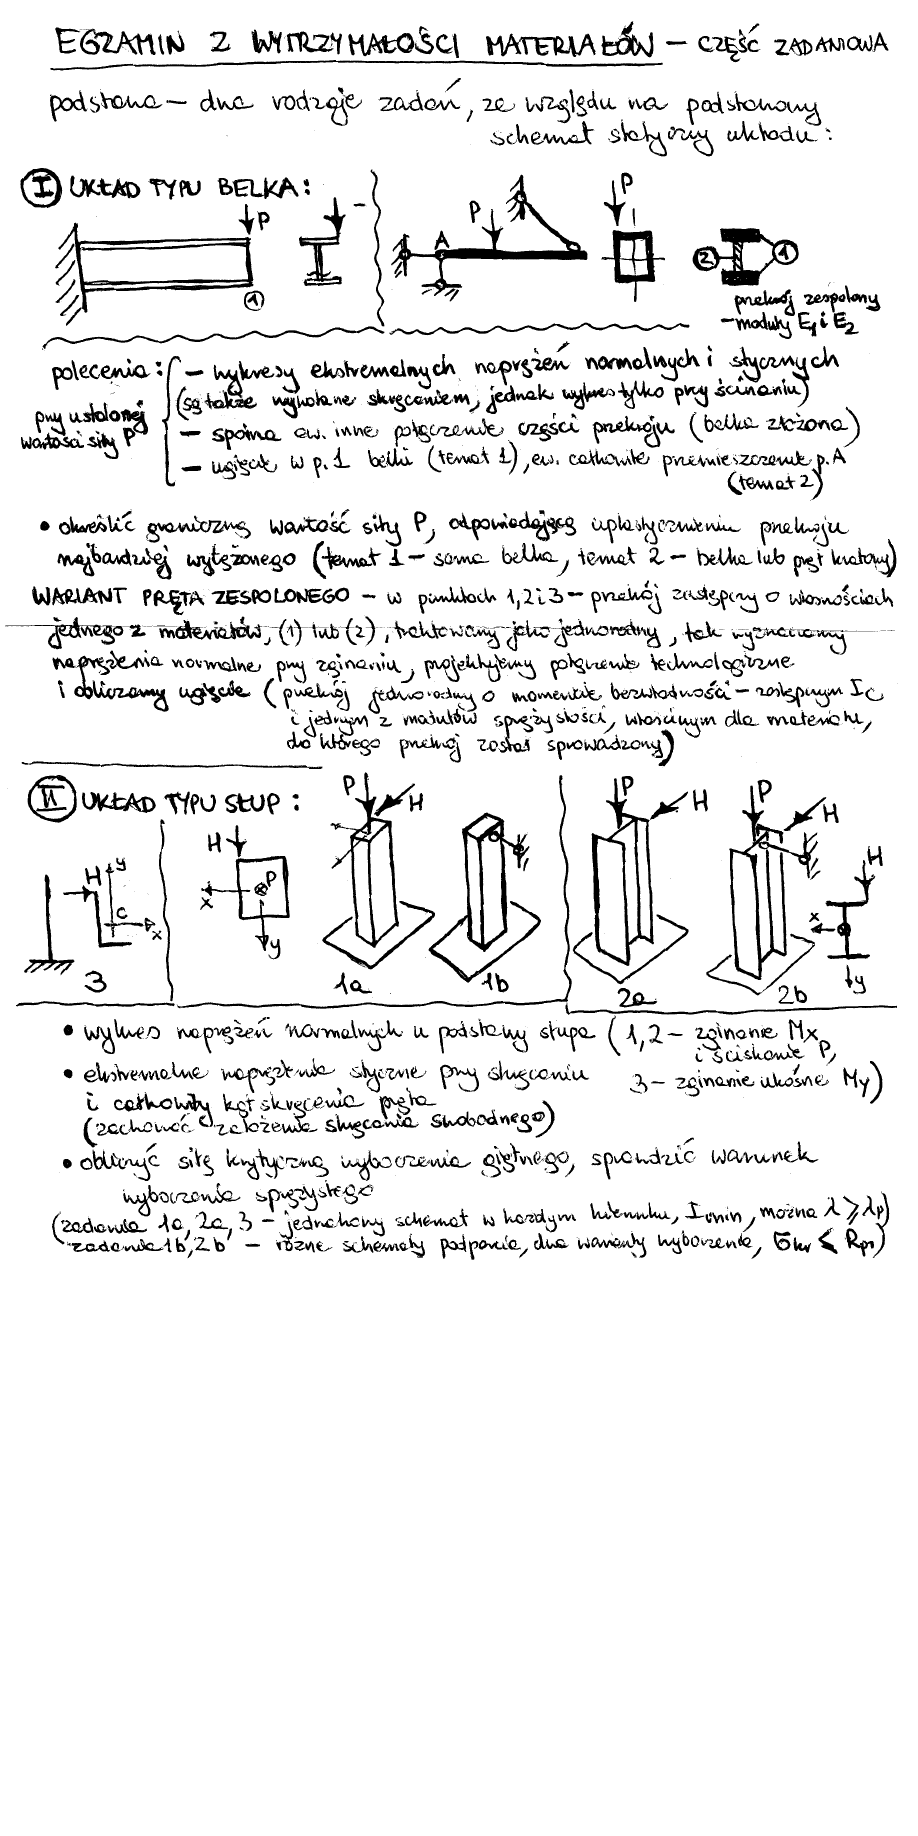 EGZAMIN Z WYTRZYMAŁOŚCI MATERIAŁÓW – CZĘŚĆ ZADANIOWA
podstawa – dwa rodzaje zadań, ze względu na podstawowy
schemat statyczny układu:
I UKŁAD TYPU BELKA:
P
1
P
A
P
2 1
przekrój zespolony
– moduły E1 i E2
polecenia: – wykresy ekstremalnych naprężeń normalnych i stycznych
(są także wywołane skręcaniem, jednak wykres tylko przy ścinaniu)
przy ustalonej
wartości siły P
– spoina ew. inne połączenie części przekroju (belka złożona)
– ugięcie w p. 1 belki (temat 1), ew. całkowite przemieszczenie p. A
(temat 2)
• określić graniczną wartość siły P, odpowiadającą uplastycznieniu przekroju
najbardziej wytężonego (temat 1 – sama belka, temat 2 – belka lub pręt kratowy)
WARIANT PRĘTA ZESPOLONEGO – w punktach 1, 2 i 3 – przekrój zastępczy o własnościach
jednego z materiałów, (1) lub (2), traktowany jako jednorodny, tak wyznaczamy
naprężenia normalne przy zginaniu, projektujemy połączenie technologiczne
i obliczamy ugięcie (przekrój jednorodny o momencie bezwładności – zastępczym Ic
i jednym z modułów sprężystości, właściwym dla materiału,
do którego przekrój został sprowadzony)
II UKŁAD TYPU SŁUP:
H
y
C
x
3
H
P
x
y
P
H
1a
1b
P
H
2a
P
H
2b
H
x
y
• wykres naprężeń normalnych u podstawy słupa (1, 2 – zginanie Mx
i ściskanie P,
3 – zginanie ukośne My)
• ekstremalne naprężenia styczne przy skręcaniu
i całkowity kąt skręcenia pręta
(zachować założenie skręcania swobodnego)
• obliczyć siłę krytyczną wyboczenia giętnego, sprawdzić warunek
wyboczenia sprężystego
(zadania 1a, 2a, 3 – jednakowy schemat w każdym kierunku, Imin, można λ ⩾ λp)
zadania 1b, 2b – różne schematy podparcia, dwa warianty wyboczenia, σkr ⩽ Rpr)